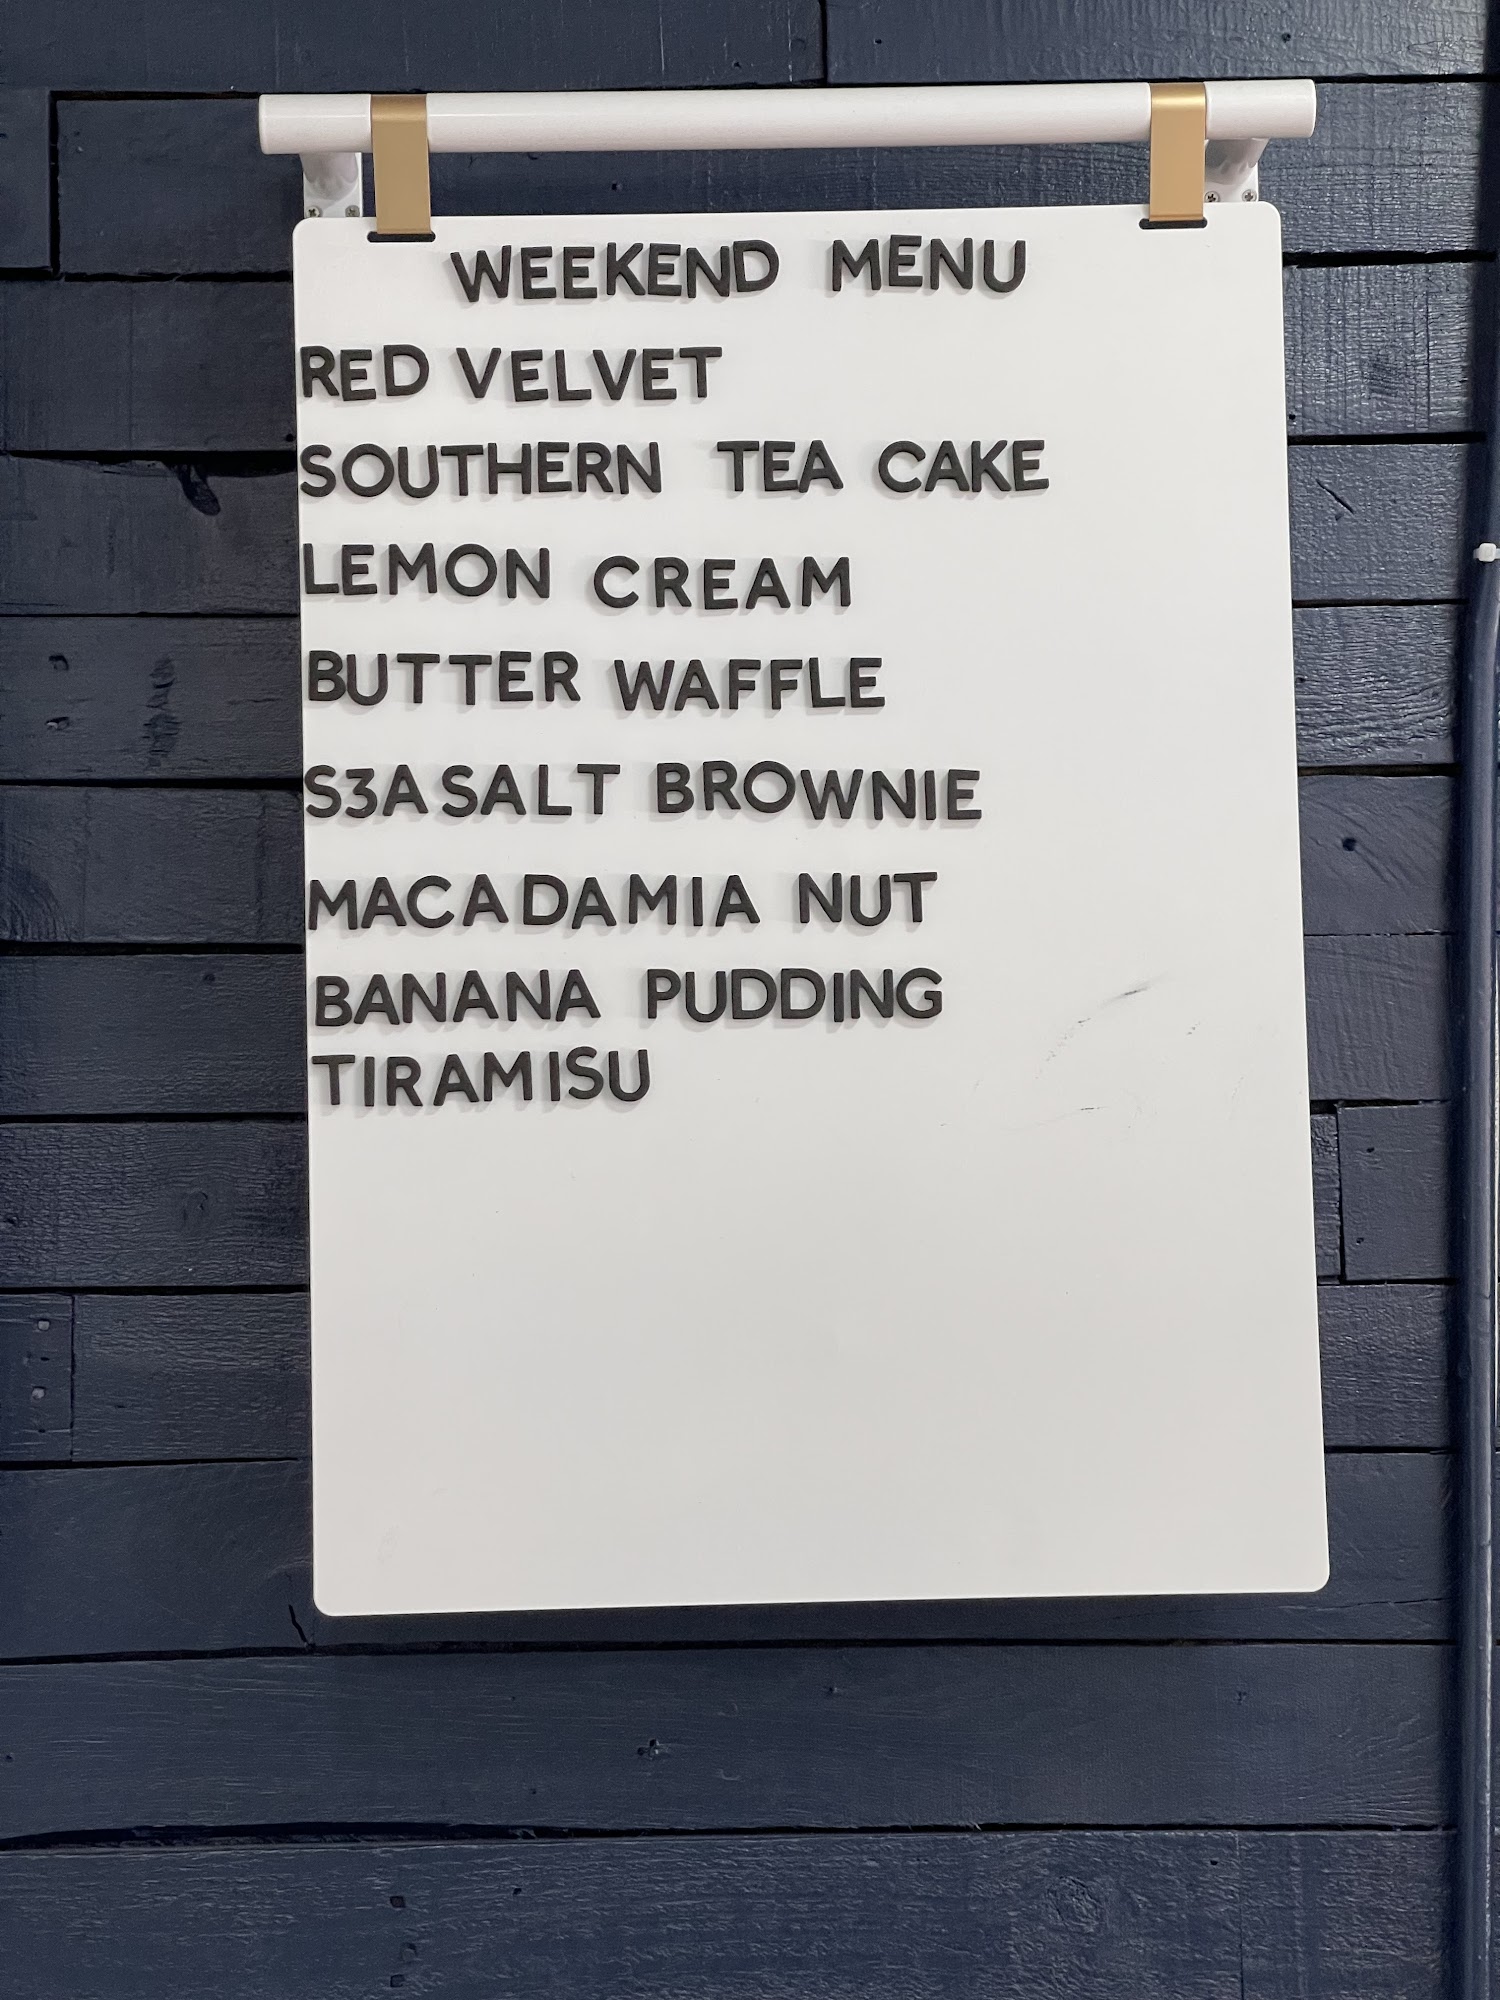 WEEKEND MENU
RED VELVET
SOUTHERN TEA CAKE
LEMON CREAM
BUTTER WAFFLE
S3A SALT BROWNIE
MACADAMIA NUT
BANANA PUDDING
TIRAMISU